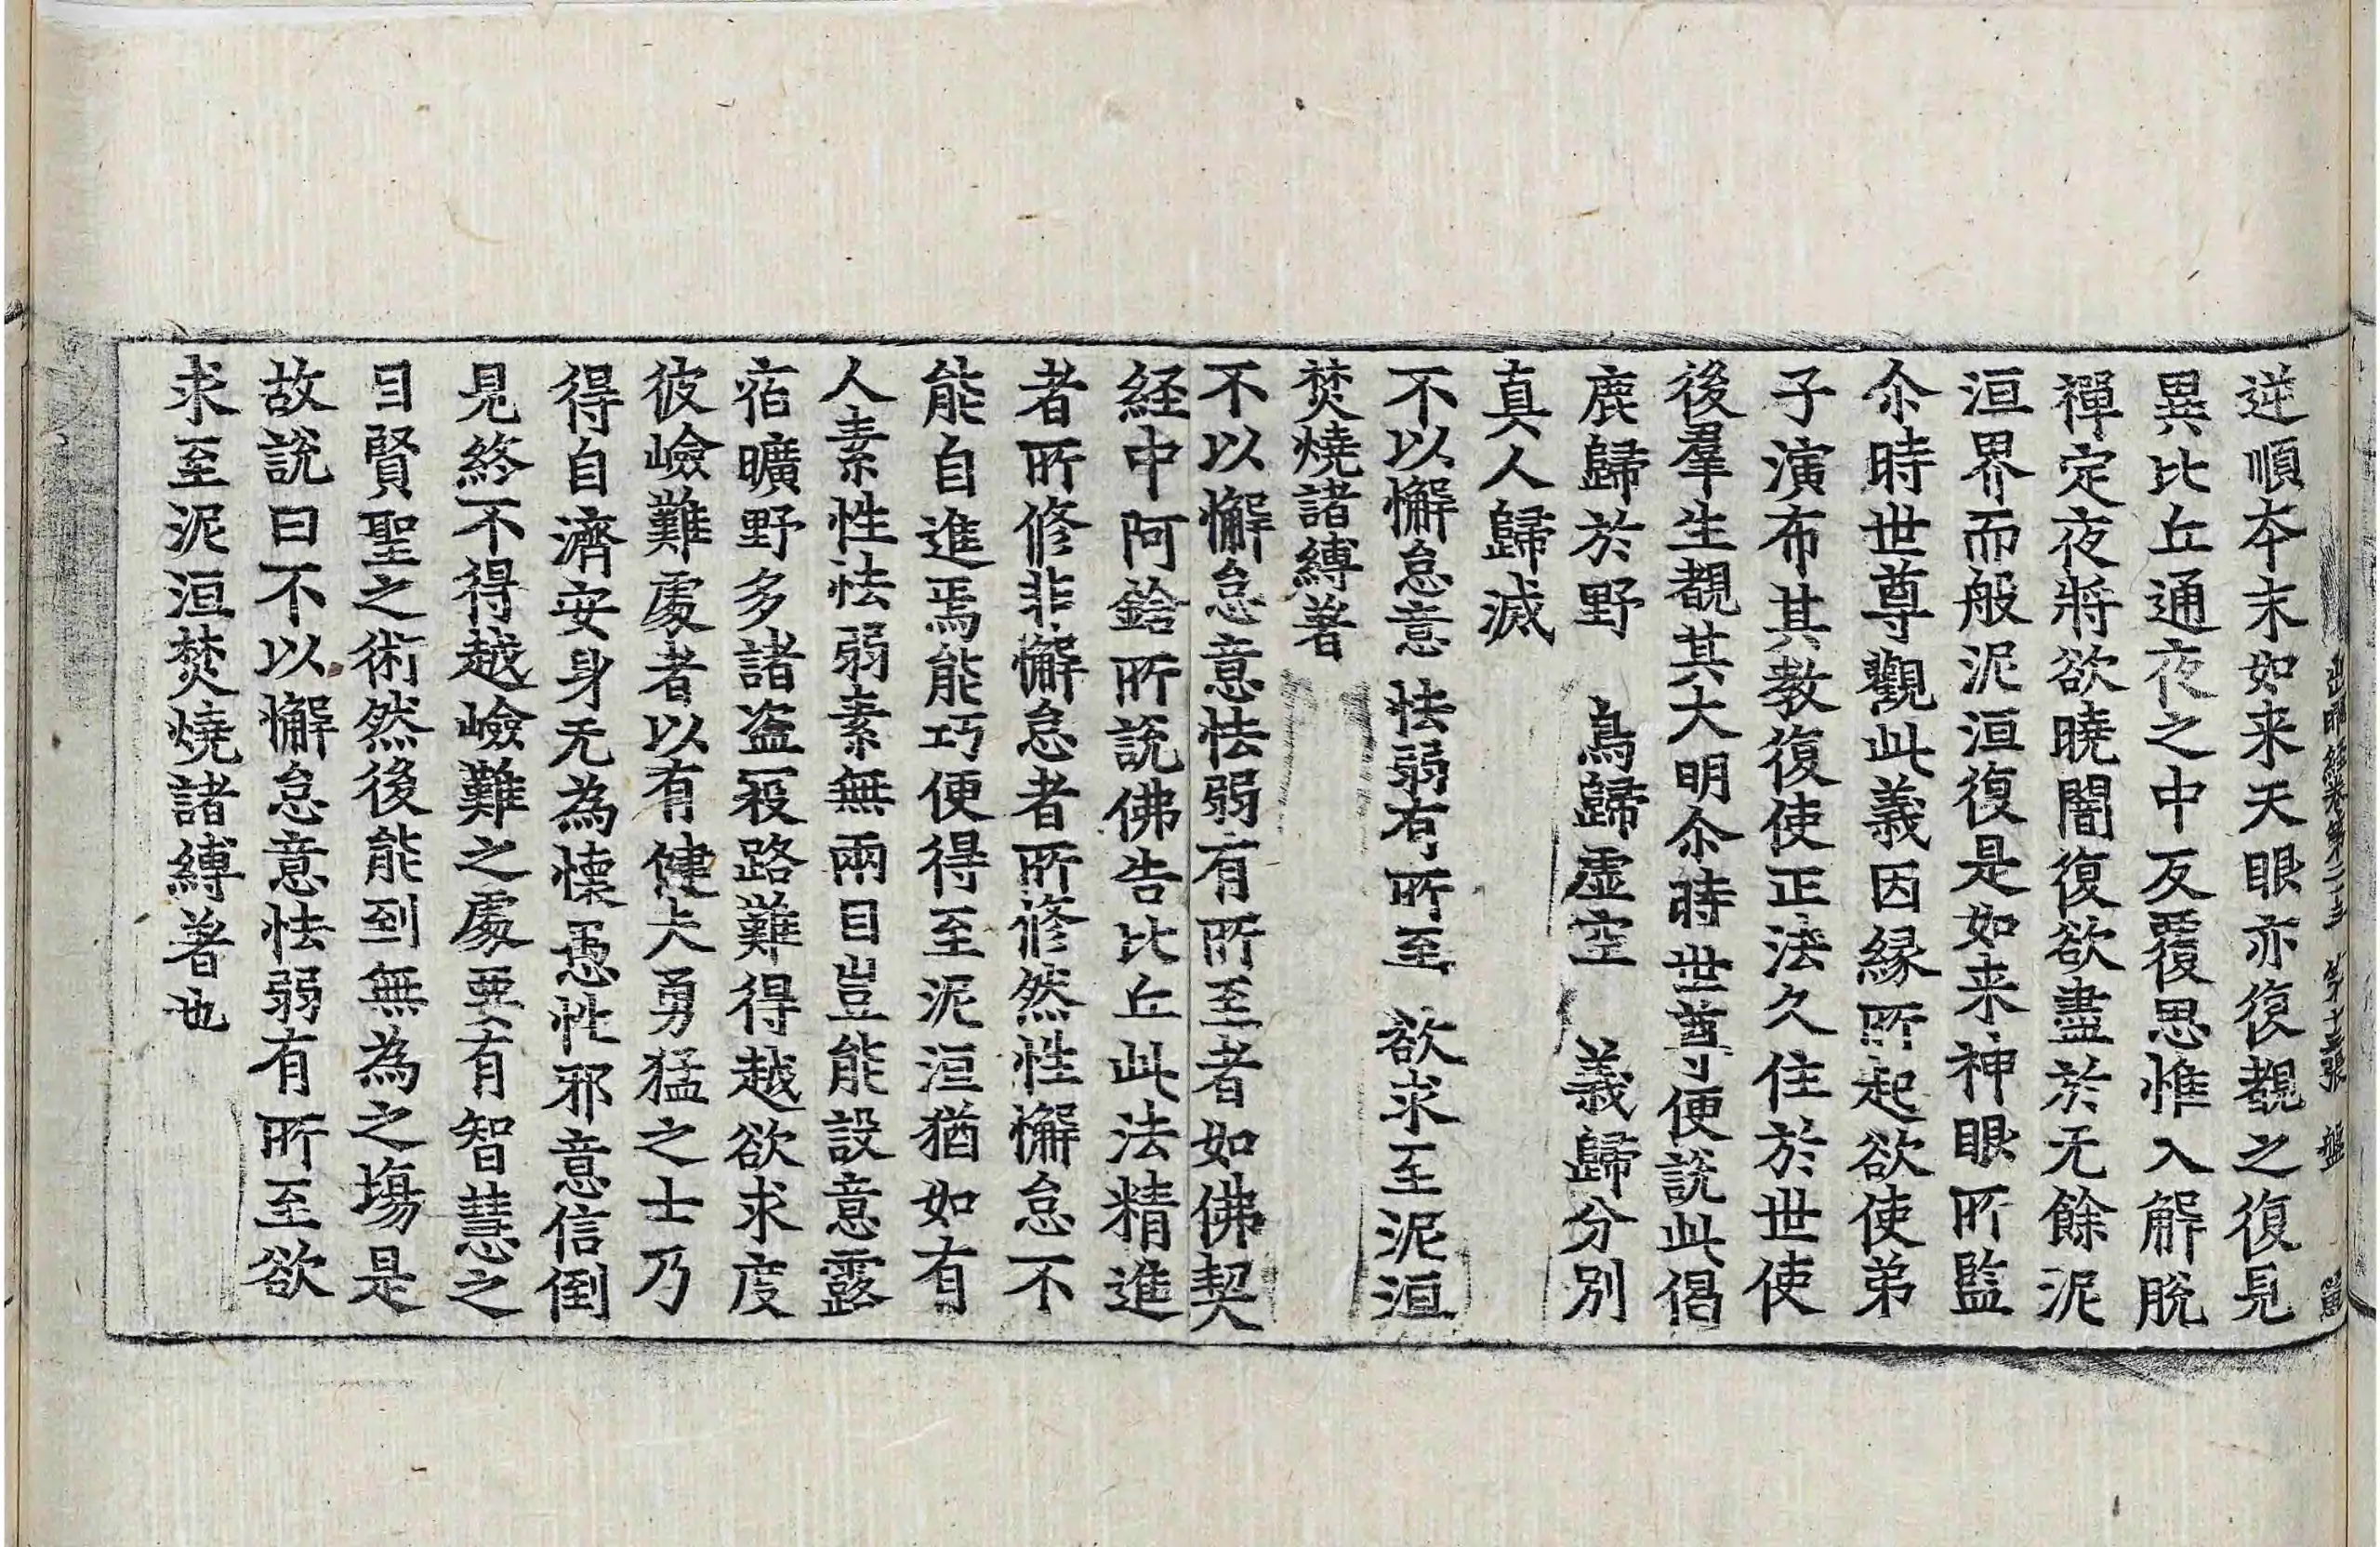 出曜経卷第二十三 第十五張 盤
逆順本末如来天眼亦復覩之復見
異比丘通夜之中反覆思惟入解脫
禪定夜將欲曉闇復欲盡於无餘泥
洹界而般泥洹復是如来神眼所監
尒時世尊觀此義因緣所起欲使弟
子演布其教復使正法久住於世使
後羣生覩其大明尒時世尊便說此偈
鹿歸於野 鳥歸虛空 義歸分別
真人歸滅
不以懈怠意 怯弱有所至 欲求至泥洹
焚燒諸縛著
不以懈怠意怯弱有所至者如佛契
経中阿鋡所說佛告比丘此法精進
者所修非懈怠者所修然性懈怠不
能自進焉能巧便得至泥洹猶如有
人素性怯弱素無兩目豈能設意露
宿曠野多諸盜㱿路難得越欲求度
彼嶮難處者以有健夫勇猛之士乃
得自濟安身无為懷愚性邪意信倒
見終不得越嶮難之處要有智慧之
目賢聖之術然後能到無為之場是
故說曰不以懈怠意怯弱有所至欲
求至泥洹焚燒諸縛著也